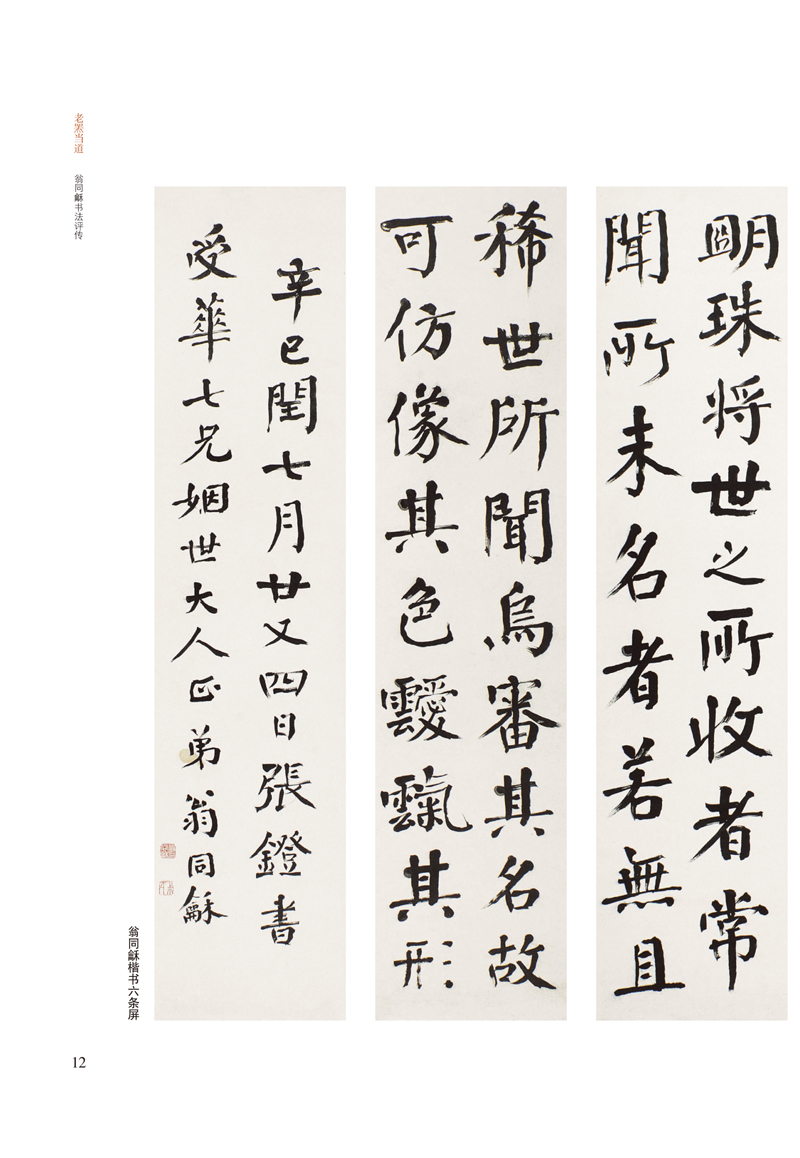 老罴当道
翁同龢书法评传
明珠将世之所收者常
聞所未名者若無且
稀世所聞烏審其名故
可仿像其色靉靆其形
辛巳閏七月廿又四日張鐙書
受華七兄姻世大人正弟翁同龢
翁同龢楷书六条屏
12